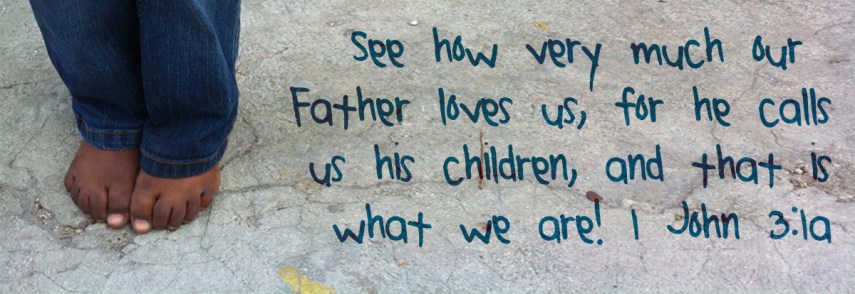 See how very much our
Father loves us, for he calls
us his children, and that is
what we are! 1 John 3:1a